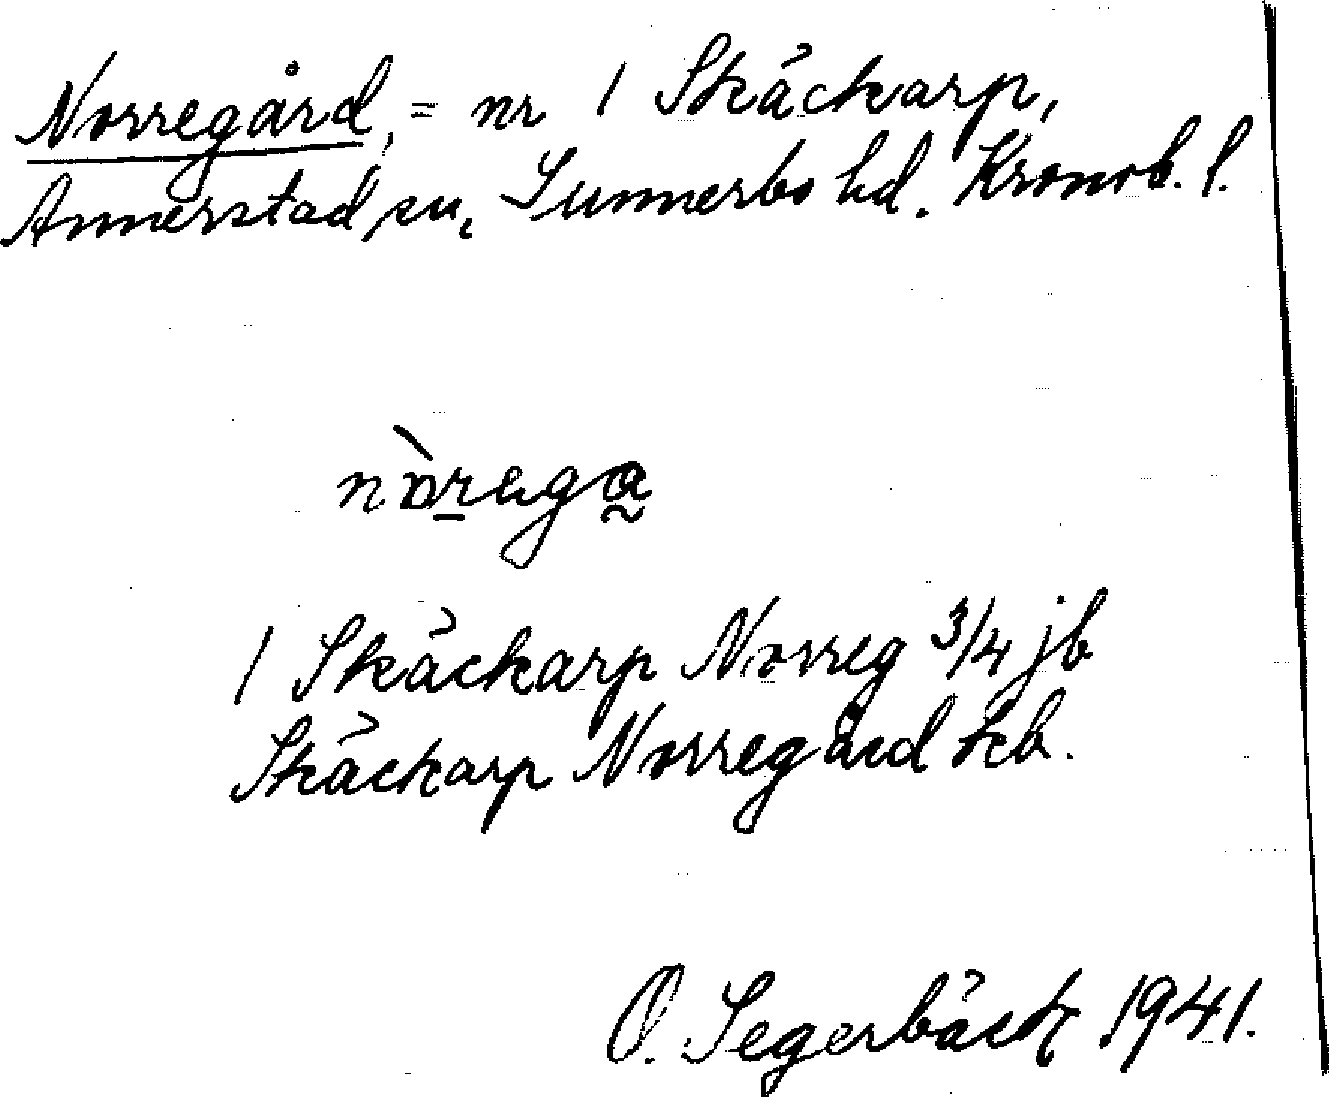 Norregård, = nr 1 Skäckarp,
Annerstad sn, Sunnerbo hd. Kronob. l.
nòrega
1 Skäckarp Norreg 3/4 jb
Skäckarp Norregård kb.
O. Segerbäck 1941.